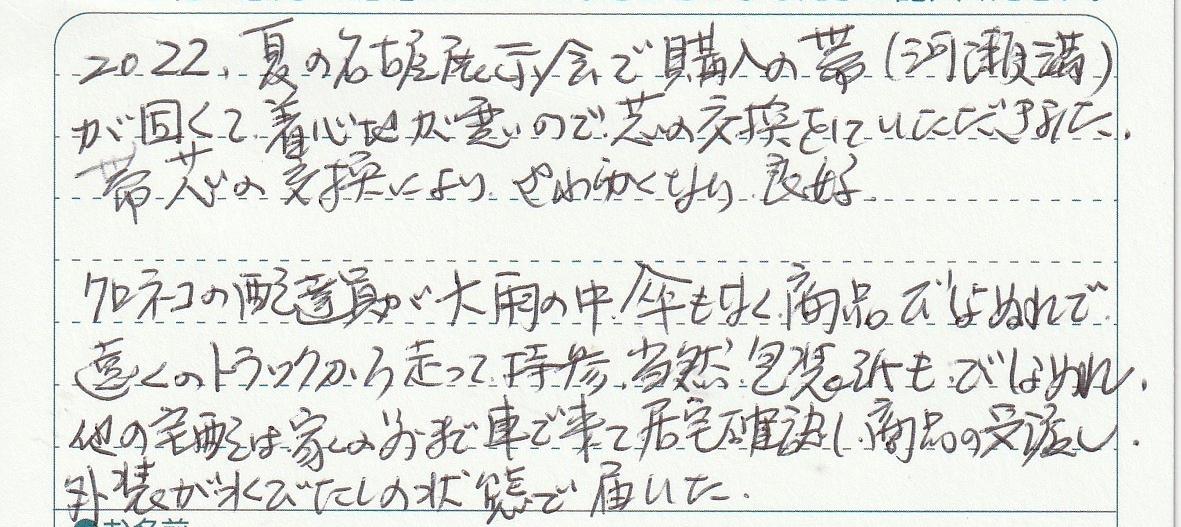 2022、夏の名古屋展示会で購入の帯(河瀬満)
が固くて着心地が悪いので芯の交換をしていただきました。
帯芯の交換により やわらかくなり 良好
クロネコの配達員が大雨の中 傘もなく 商品びしょぬれで
遠くのトラックから走って持参 当然 包装紙もびしょぬれ、
他の宅配は家の前まで車で来て居宅確認し商品の受渡し、
外装が水びたしの状態で届いた。
お名前